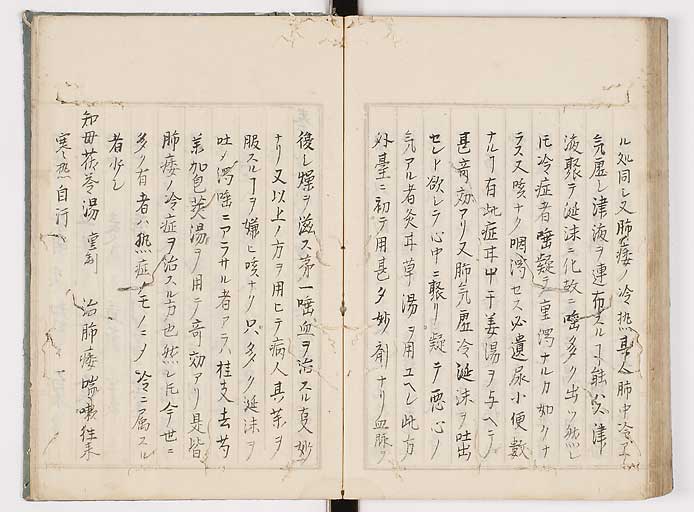 ル処同し又肺痿ノ冷熱真人肺中冷テ
気虚し津液ヲ運布スルヿ能ハズ津
液聚テ涎沫ニ化故ニ唾多ク出ツ然し
𪜈冷症者唾凝テ重濁ナルカ如クナ
ラス又咳ナク咽渇セス必遺尿小便数
ナルヿ有此症ヰ甘干姜湯ヲ与ヘテ
甚竒効アリ又肺気虚冷涎沫ヲ吐出
セント欲レテ心中ニ聚リ凝テ悪心ノ
気アル者炙ヰ草湯ヲ用ユヘレ此方
外臺ニ初テ用甚タ妙剤ナリ血脉ヲ
復し燥ヲ滋ス第一唾血ヲ治スル夏妙
ナリ又以上ノ方ヲ用ヒテ病人其茶ヲ
服スルヿヲ嫌ヒ咳ナク只多ク涎沫ヲ
吐メ濁唾ニアラサル者アラハ桂支去芍
薬加皂莢湯ヲ用テ竒効アリ是皆
肺痿ノ冷症ヲ治スル方也然し𪜈今世ニ
多ク有者ハ熱症ノモノニノ冷ニ属スル
者少し
知母茯苓湯 宣刻 治肺痿喘嗽往来
寒熱自汗